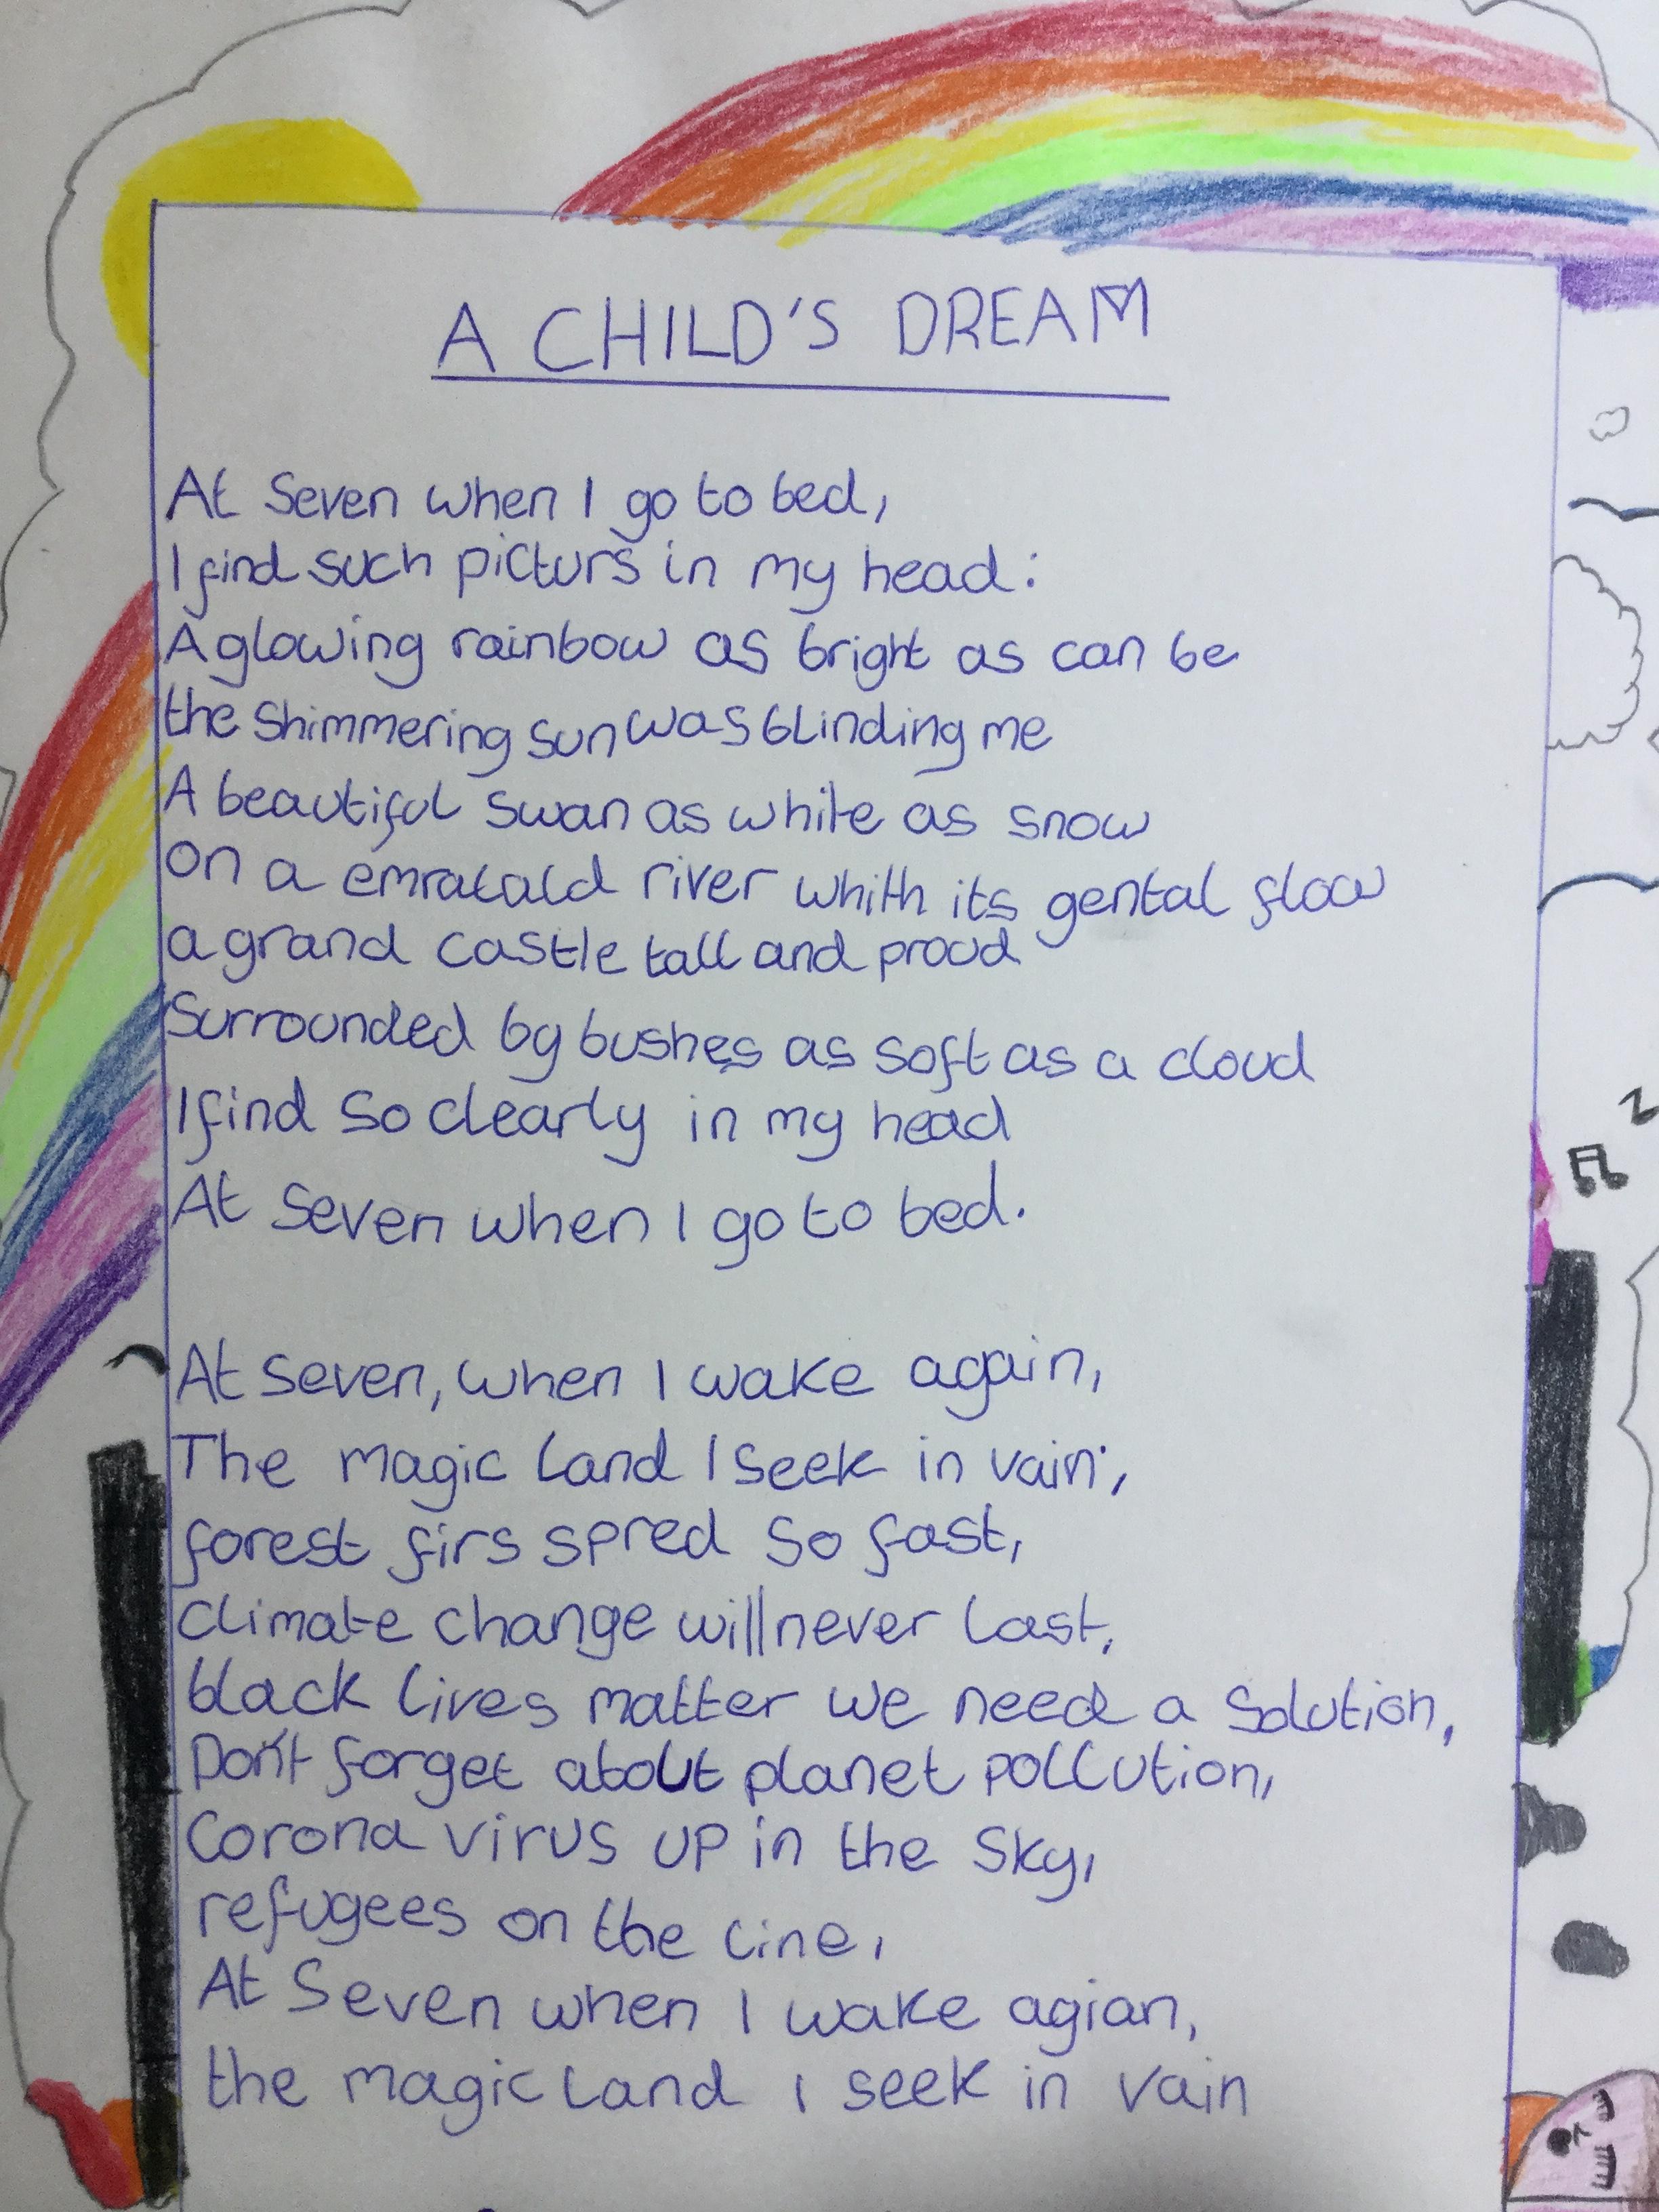 A CHILD'S DREAM
At Seven when I go to bed,
I find such picturs in my head:
A glowing rainbow as bright as can be
the shimmering sun was blinding me
A beautiful swan as white as snow
on a emracald river whith its gental flow
a grand castle tall and proud
Surrounded by bushes as soft as a cloud
I find so clearly in my head
At Seven when I go to bed.
At seven, when I wake again,
The magic land I seek in vain;
forest firs spred so fast,
climate change will never last,
black lives matter we need a solution,
Don't forget about planet pollution,
Corona virus up in the sky,
refugees on the line,
At Seven when I wake agian,
the magic land I seek in vain